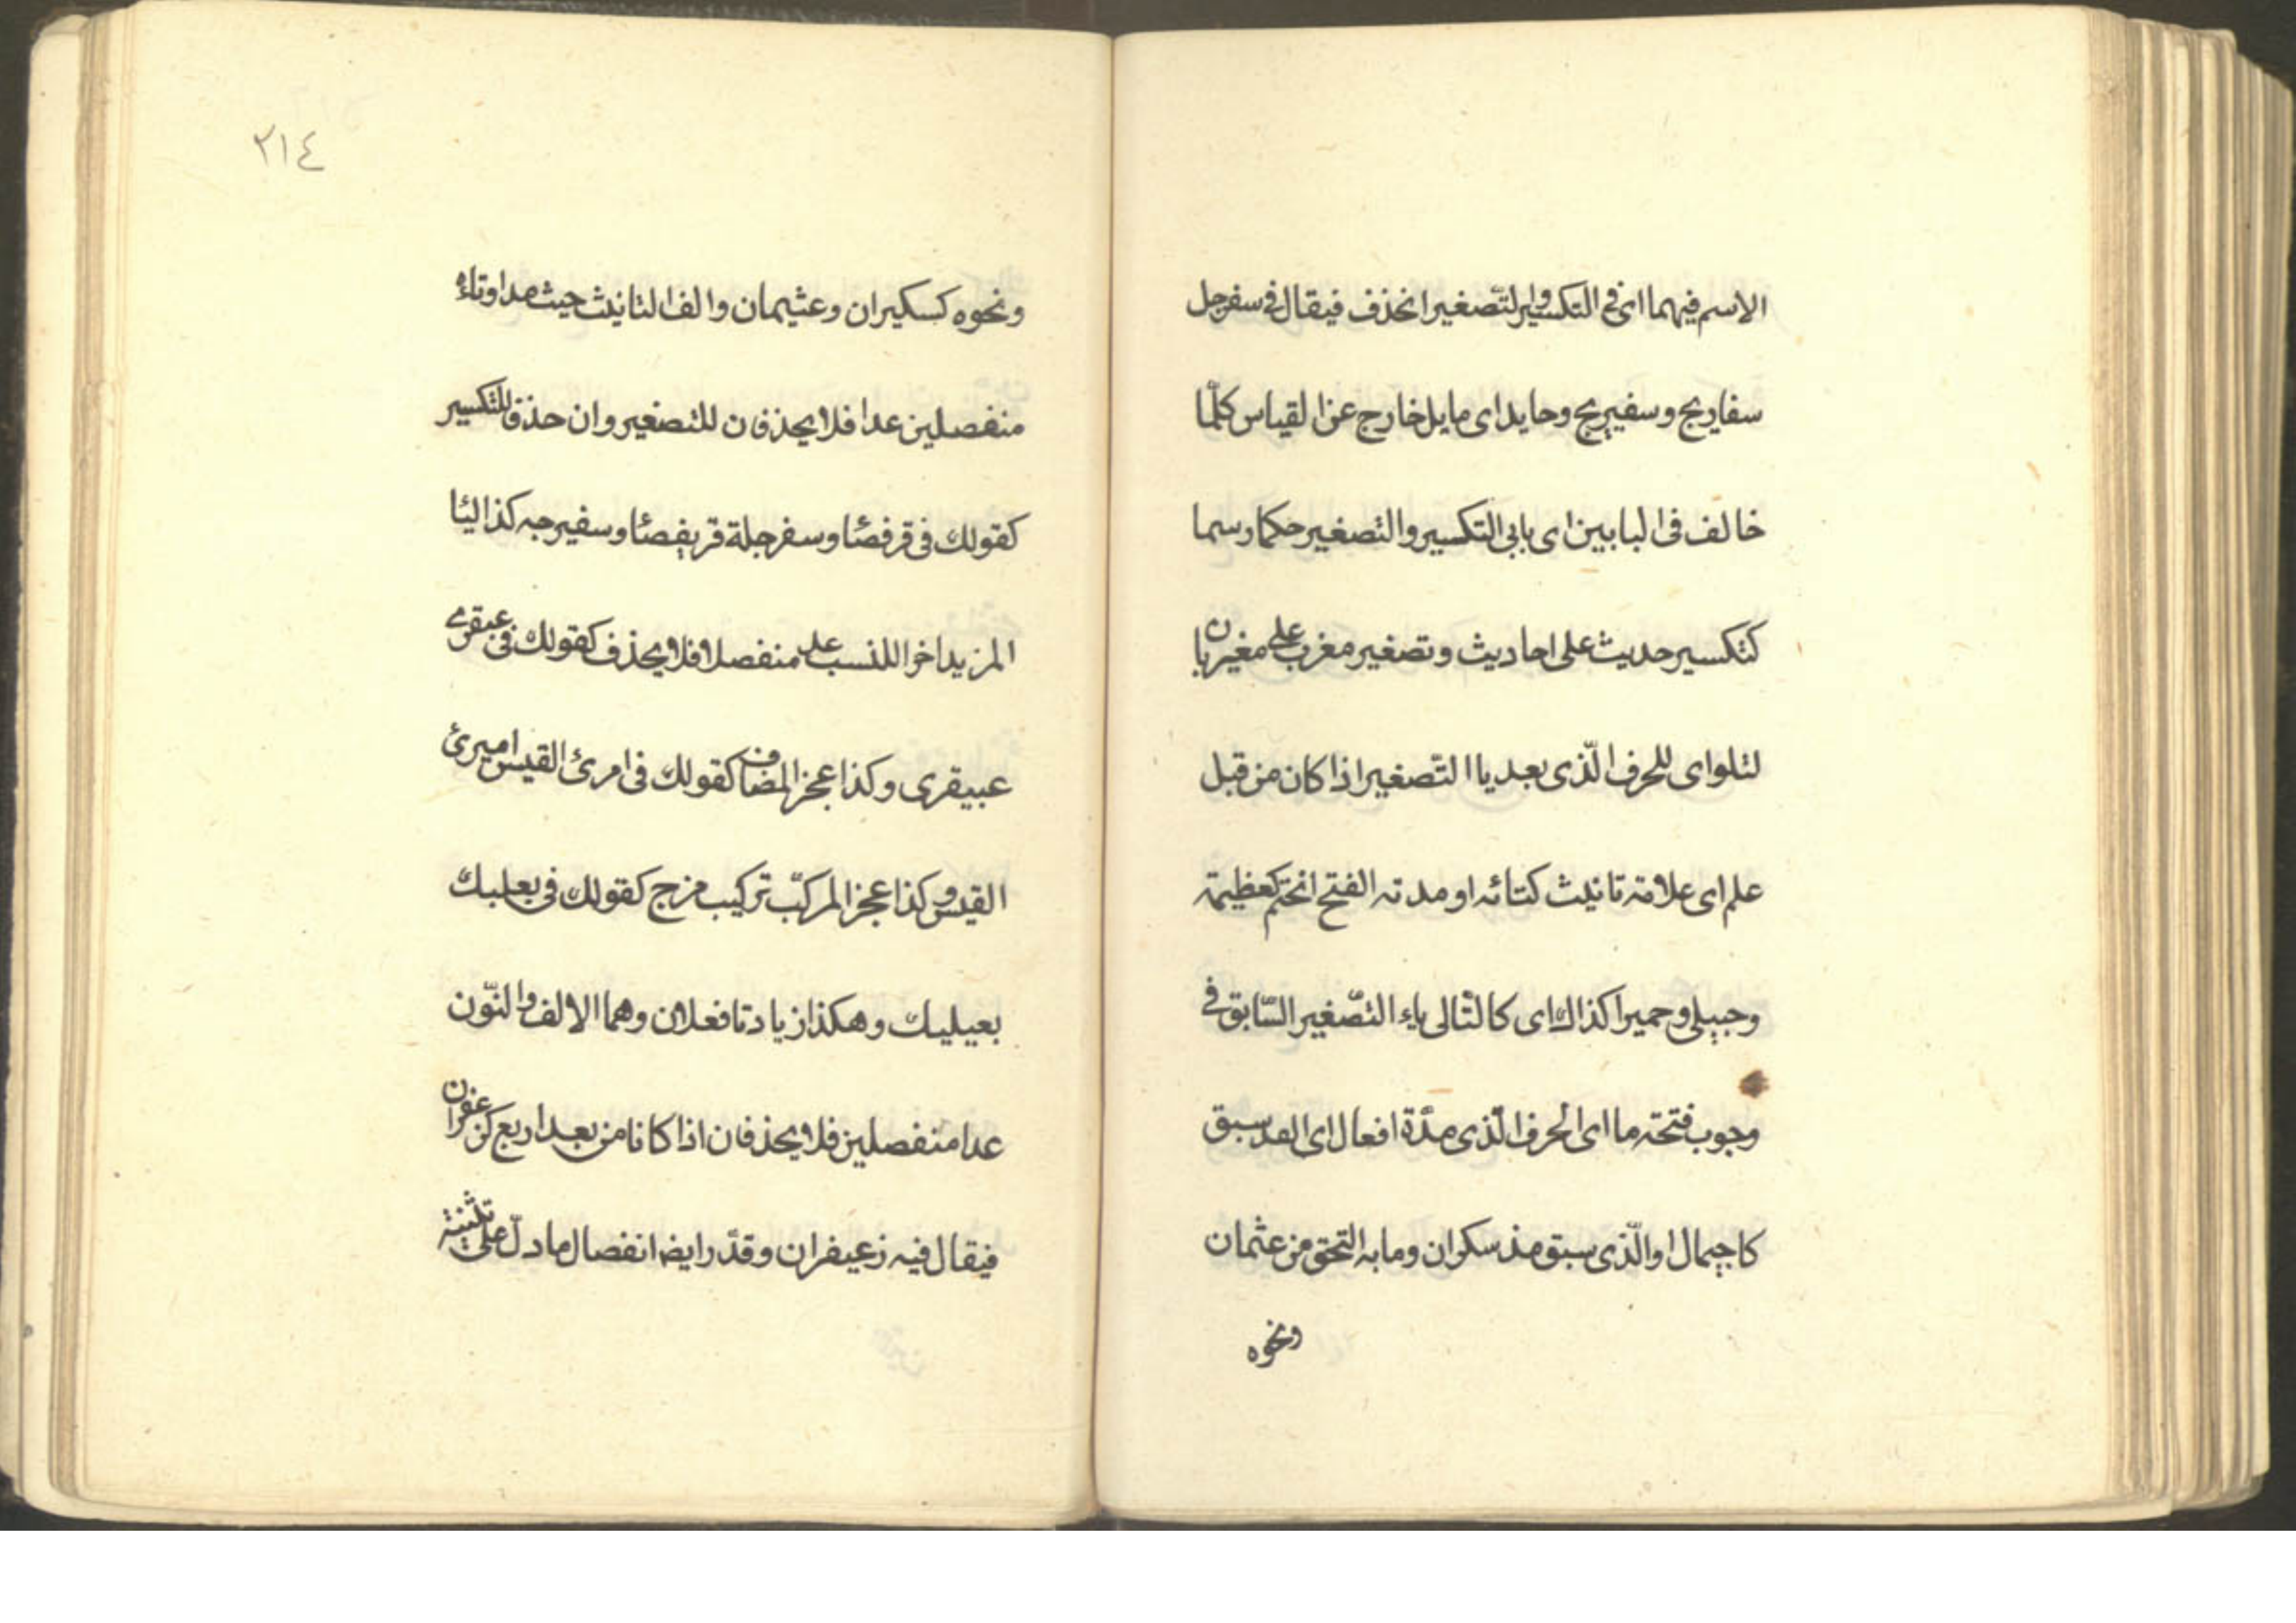 الاسم فيهما اى فى التكسير والتّصغير انحذف فيقال فى سفرجل
سفاريج وسفيريج وحايد اى مايل خارج عن القياس كلّما
خالف فى البابين اى بابى التكسير والتصغير حكما رسما
كتكسير حديث على احاديث وتصغير مغرب على مغيربان
لتلو اى للحرف الّذى بعد يا التّصغير اذا كان من قبل
علم اى علامة تانيث كتائه او مدته الفتح انحتم كعظيمة
وحبيلى وحميرا كذاك اى كالتّالى ياء التّصغير السّابق فى
وجوب فتحته ما اى الحرف الّذى مدّة افعال اى الفه سبق
كاجيمال او الّذى سبق مد سكران وما به التحق من عثمان
ونحوه
٢١٤
ونحوه كسكيران وعثيمان والف التانيث حيث مدا وتاؤه
منفصلين عدا فلا يحذفان للتصغير وان حذفا للتكسير
كقولك فى قرفصئا وسفرجلة قريفصئا وسفيرجه كذا اليئا
المزيد اخرا للنسب عد منفصلا فلا يحذف كقولك فى عبقرى
عبيقرى وكذا عجز المضاف كقولك فى امرئ القيس اميرئ
القيس وكذا عجز المركّب تركيب مزج كقولك فى بعلبك
بعيلبك وهكذا زيادتا فعلان وهما الالف والنّون
عدا منفصلين فلا يحذفان اذا كانا من بعد اربع كزعفران
فيقال فيه زعيفران وقدّر ايضا انفصال ما دلّ على تثنية